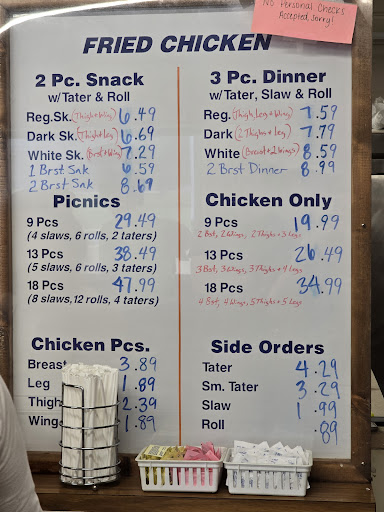 No Personal Checks
Accepted. Sorry!
FRIED CHICKEN
2 Pc. Snack
w/Tater & Roll
Reg.Sk. (Thigh+Wing) 6.49
Dark Sk. (Thigh+leg) 6.69
White Sk. (Brst+Wing) 7.29
1 Brst Snk 6.59
2 Brst Snk 8.69
Picnics
9 Pcs 29.49
(4 slaws, 6 rolls, 2 taters)
13 Pcs 38.49
(5 slaws, 6 rolls, 3 taters)
18 Pcs 47.99
(8 slaws,12 rolls, 4 taters)
Chicken Pcs.
Breast 3.89
Leg 1.89
Thigh 2.39
Wing 1.89
3 Pc. Dinner
w/Tater, Slaw & Roll
Reg. (Thigh, leg + Wing) 7.59
Dark (2 Thighs + leg) 7.79
White (Breast + 2 Wings) 8.59
2 Brst Dinner 8.99
Chicken Only
9 Pcs 19.99
2 Bst, 2 Wings, 2 Thighs + 3 Legs
13 Pcs 26.49
3 Bst, 3 Wings, 3 Thighs + 4 Legs
18 Pcs 34.99
4 Bst, 4 Wings, 5 Thighs + 5 Legs
Side Orders
Tater 4.29
Sm. Tater 3.29
Slaw 1.99
Roll .89